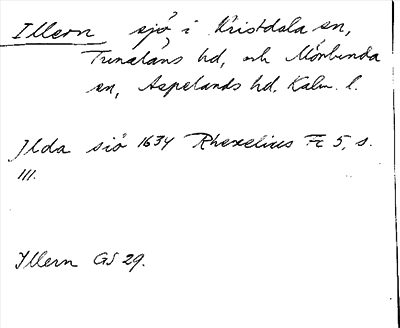 Illern sjö i Kristdala sn,
Tunaläns hd, och Mörlunda
sn, Aspelands hd. Kalm. l.
Ilda siö 1634 Rhezelius Fc 5, s.
111.
Illern GS 29.